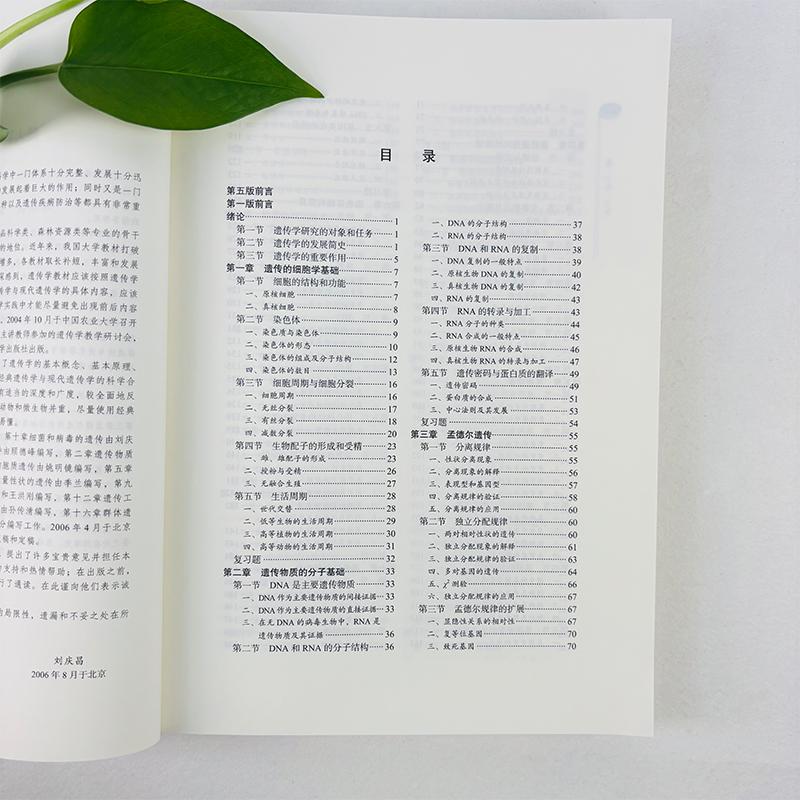 学中一门体系十分完整、发展十分迅
发展起着巨大的作用；同时又是一门
种以及遗传疾病防治等都具有非常重
品科学类、森林资源类等专业的骨干
的地位。近年来，我国大学教材打破
增多，各教材取长补短，丰富和发展
深感到，遗传学教材应该按照遗传学
传学与现代遗传学的具体内容，应该
学实践中才能尽量避免出现前后内容
。2004年10月于中国农业大学召开
主讲教师参加的遗传学教学研讨会，
学出版社出版。
了遗传学的基本概念、基本原理、
经典遗传学与现代遗传学的科学合
有适当的深度和广度，较全面地反
动物和微生物并重，尽量使用经典
易懂。
第十章细菌和病毒的遗传由刘庆
由顾德峰编写，第二章遗传物质
胞质遗传由姚明镜编写，第五章
量性状的遗传由季兰编写，第九
和王洪刚编写，第十二章遗传工
由孙传清编写，第十六章群体遗
分编写工作。2006年4月于北京
稿和定稿。
提出了许多宝贵意见并担任本
支持和热情帮助；在出版之前，
行了通读。在此谨向他们表示诚
的局限性，遗漏和不妥之处在所
刘庆昌
2006年8月于北京
目 录
第五版前言
第一版前言
绪论 1
第一节 遗传学研究的对象和任务 1
第二节 遗传学的发展简史 1
第三节 遗传学的重要作用 5
第一章 遗传的细胞学基础 7
第一节 细胞的结构和功能 7
一、原核细胞 7
二、真核细胞 8
第二节 染色体 9
一、染色质与染色体 9
二、染色体的形态 10
三、染色体的组成及分子结构 12
四、染色体的数目 13
第三节 细胞周期与细胞分裂 16
一、细胞周期 16
二、无丝分裂 17
三、有丝分裂 18
四、减数分裂 20
第四节 生物配子的形成和受精 23
一、雌、雄配子的形成 23
二、授粉与受精 26
三、无融合生殖 27
第五节 生活周期 28
一、世代交替 28
二、低等生物的生活周期 29
三、高等植物的生活周期 30
四、高等动物的生活周期 31
复习题 32
第二章 遗传物质的分子基础 33
第一节 DNA是主要遗传物质 33
一、DNA作为主要遗传物质的间接证据 33
二、DNA作为主要遗传物质的直接证据 33
三、在无DNA的病毒生物中，RNA是
遗传物质及其证据 36
第二节 DNA和RNA的分子结构 36
一、DNA的分子结构 37
二、RNA的分子结构 38
第三节 DNA和RNA的复制 38
一、DNA复制的一般特点 39
二、原核生物DNA的复制 40
三、真核生物DNA的复制 42
四、RNA的复制 43
第四节 RNA的转录与加工 43
一、RNA分子的种类 44
二、RNA合成的一般特点 45
三、原核生物RNA的合成 46
四、真核生物RNA的转录与加工 47
第五节 遗传密码与蛋白质的翻译 49
一、遗传密码 49
二、蛋白质的合成 51
三、中心法则及其发展 53
复习题 54
第三章 孟德尔遗传 55
第一节 分离规律 55
一、性状分离现象 55
二、分离现象的解释 56
三、表现型和基因型 57
四、分离规律的验证 58
五、分离规律的应用 60
第二节 独立分配规律 60
一、两对相对性状的遗传 60
二、独立分配现象的解释 61
三、独立分配规律的验证 63
四、多对基因的遗传 64
五、χ²测验 66
六、独立分配规律的应用 67
第三节 孟德尔规律的扩展 67
一、显隐性关系的相对性 67
二、复等位基因 70
三、致死基因 70